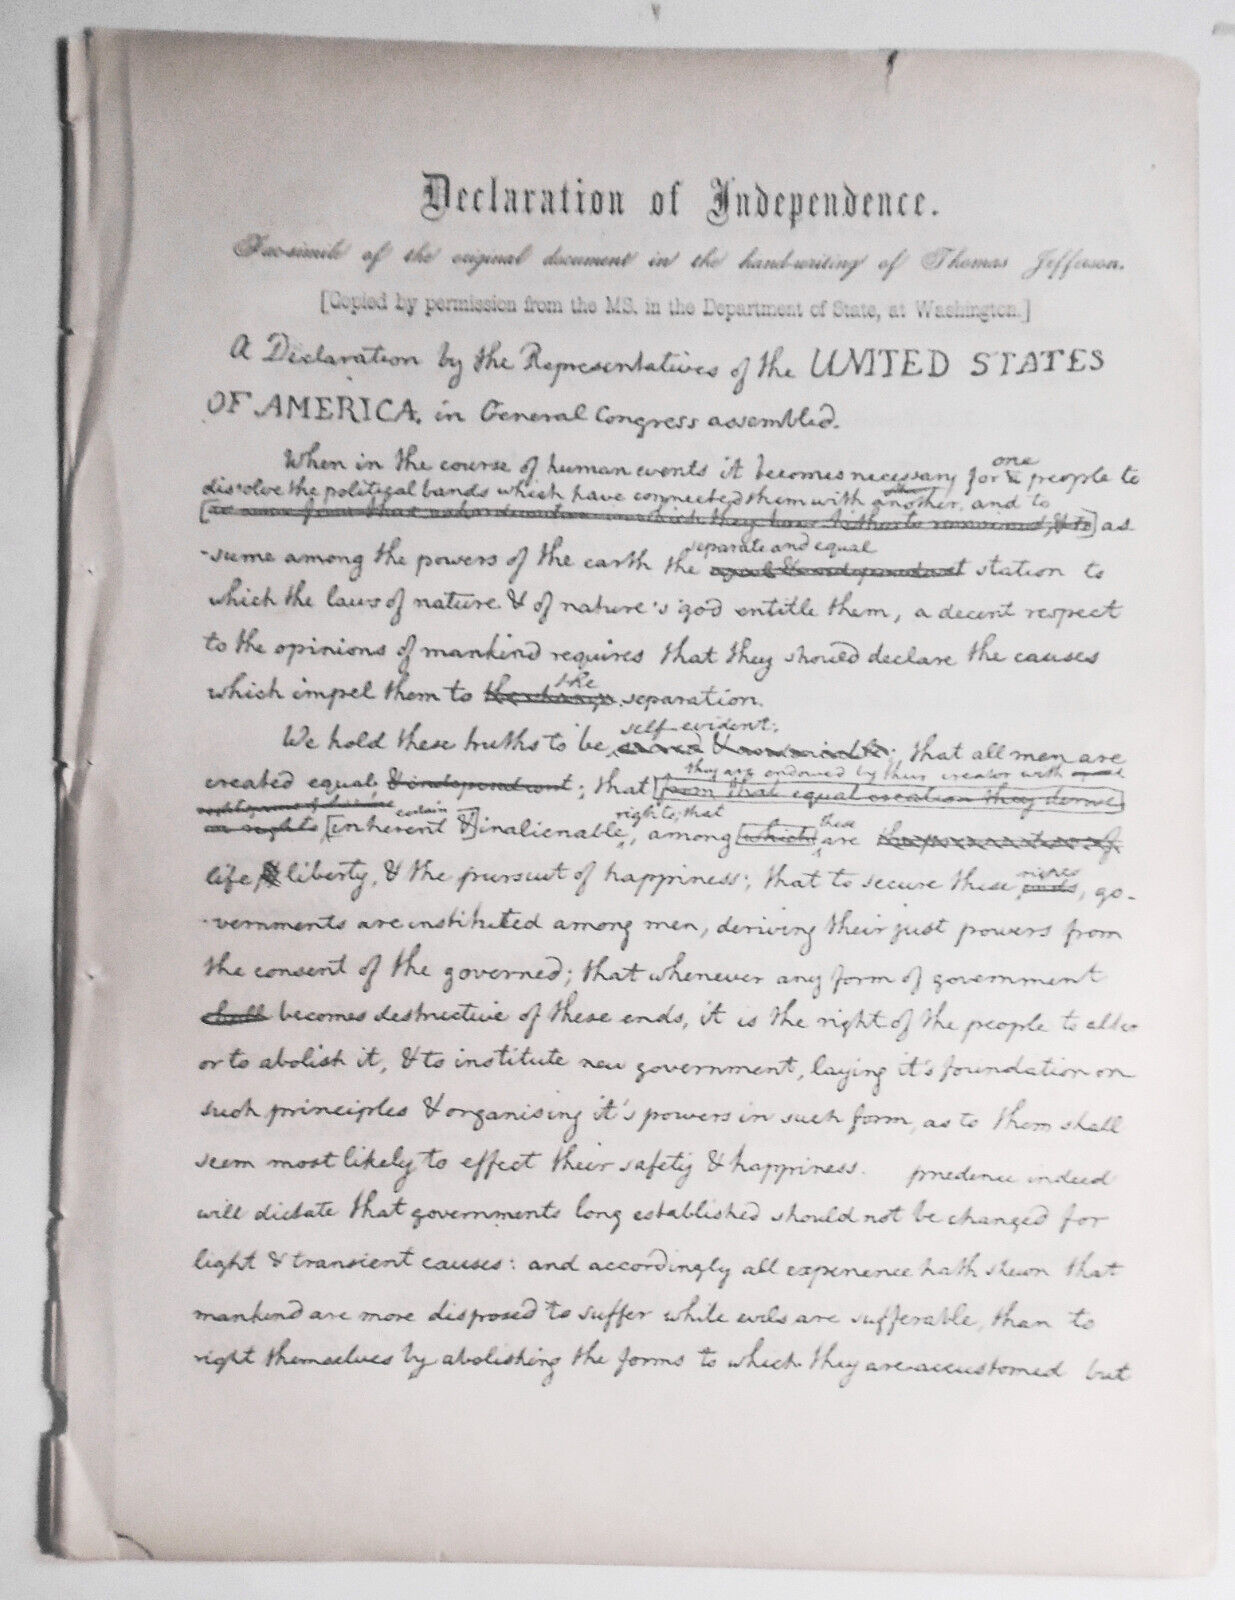 Declaration of Independence.
Fac-simile of the original document in the hand-writing of Thomas Jefferson.
[Copied by permission from the MS. in the Department of State, at Washington.]
A Declaration by the Representatives of the UNITED STATES
OF AMERICA, in General Congress assembled.
When in the course of human events it becomes necessary for one people to
dissolve the political bands which have connected them with another, and to
[ which they have hitherto remained, & to] as
-sume among the powers of the earth the
separate and equal
equal & independent station to
which the laws of nature & of nature's god entitle them, a decent respect
to the opinions of mankind requires that they should declare the causes
which impel them to the change the separation.
self-evident;
We hold these truths to be sacred & undeniable; that all men are
they are endowed by their creator with
created equal & independent; that [from that equal creation they derive]
certain rights; that these
[inherent &] inalienable, among [which] are
rights
life & liberty, & the pursuit of happiness; that to secure these ends, go-
-vernments are instituted among men, deriving their just powers from
the consent of the governed; that whenever any form of government
shall becomes destructive of these ends, it is the right of the people to alter
or to abolish it, & to institute new government, laying it's foundation on
such principles & organising it's powers in such form, as to them shall
seem most likely to effect their safety & happiness. prudence indeed
will dictate that governments long established should not be changed for
light & transient causes: and accordingly all experience hath shewn that
mankind are more disposed to suffer while evils are sufferable, than to
right themselves by abolishing the forms to which they are accustomed but